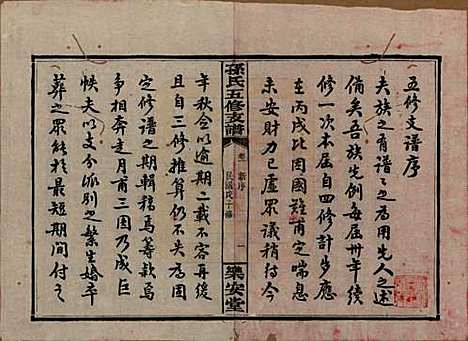 五修支譜序
夫族之有譜之為用先人之述
備矣吾族先例每屆卅年續
修一次本屆自四修計歩應
在丙戌比因國難甫定喘息
未安財力已虛眾議稍待今
孫氏五修支譜
卷一
新序
民國戊子
一
樂安堂
年秋會以逾期二載不容再緩
且自三修推算仍不失為因
定修譜之期輯稿焉籌款焉
爭相奔走月甫三圓乃成巨
帙夫以支分派別之繁生婚卒
葬之眾能於最短期間付之